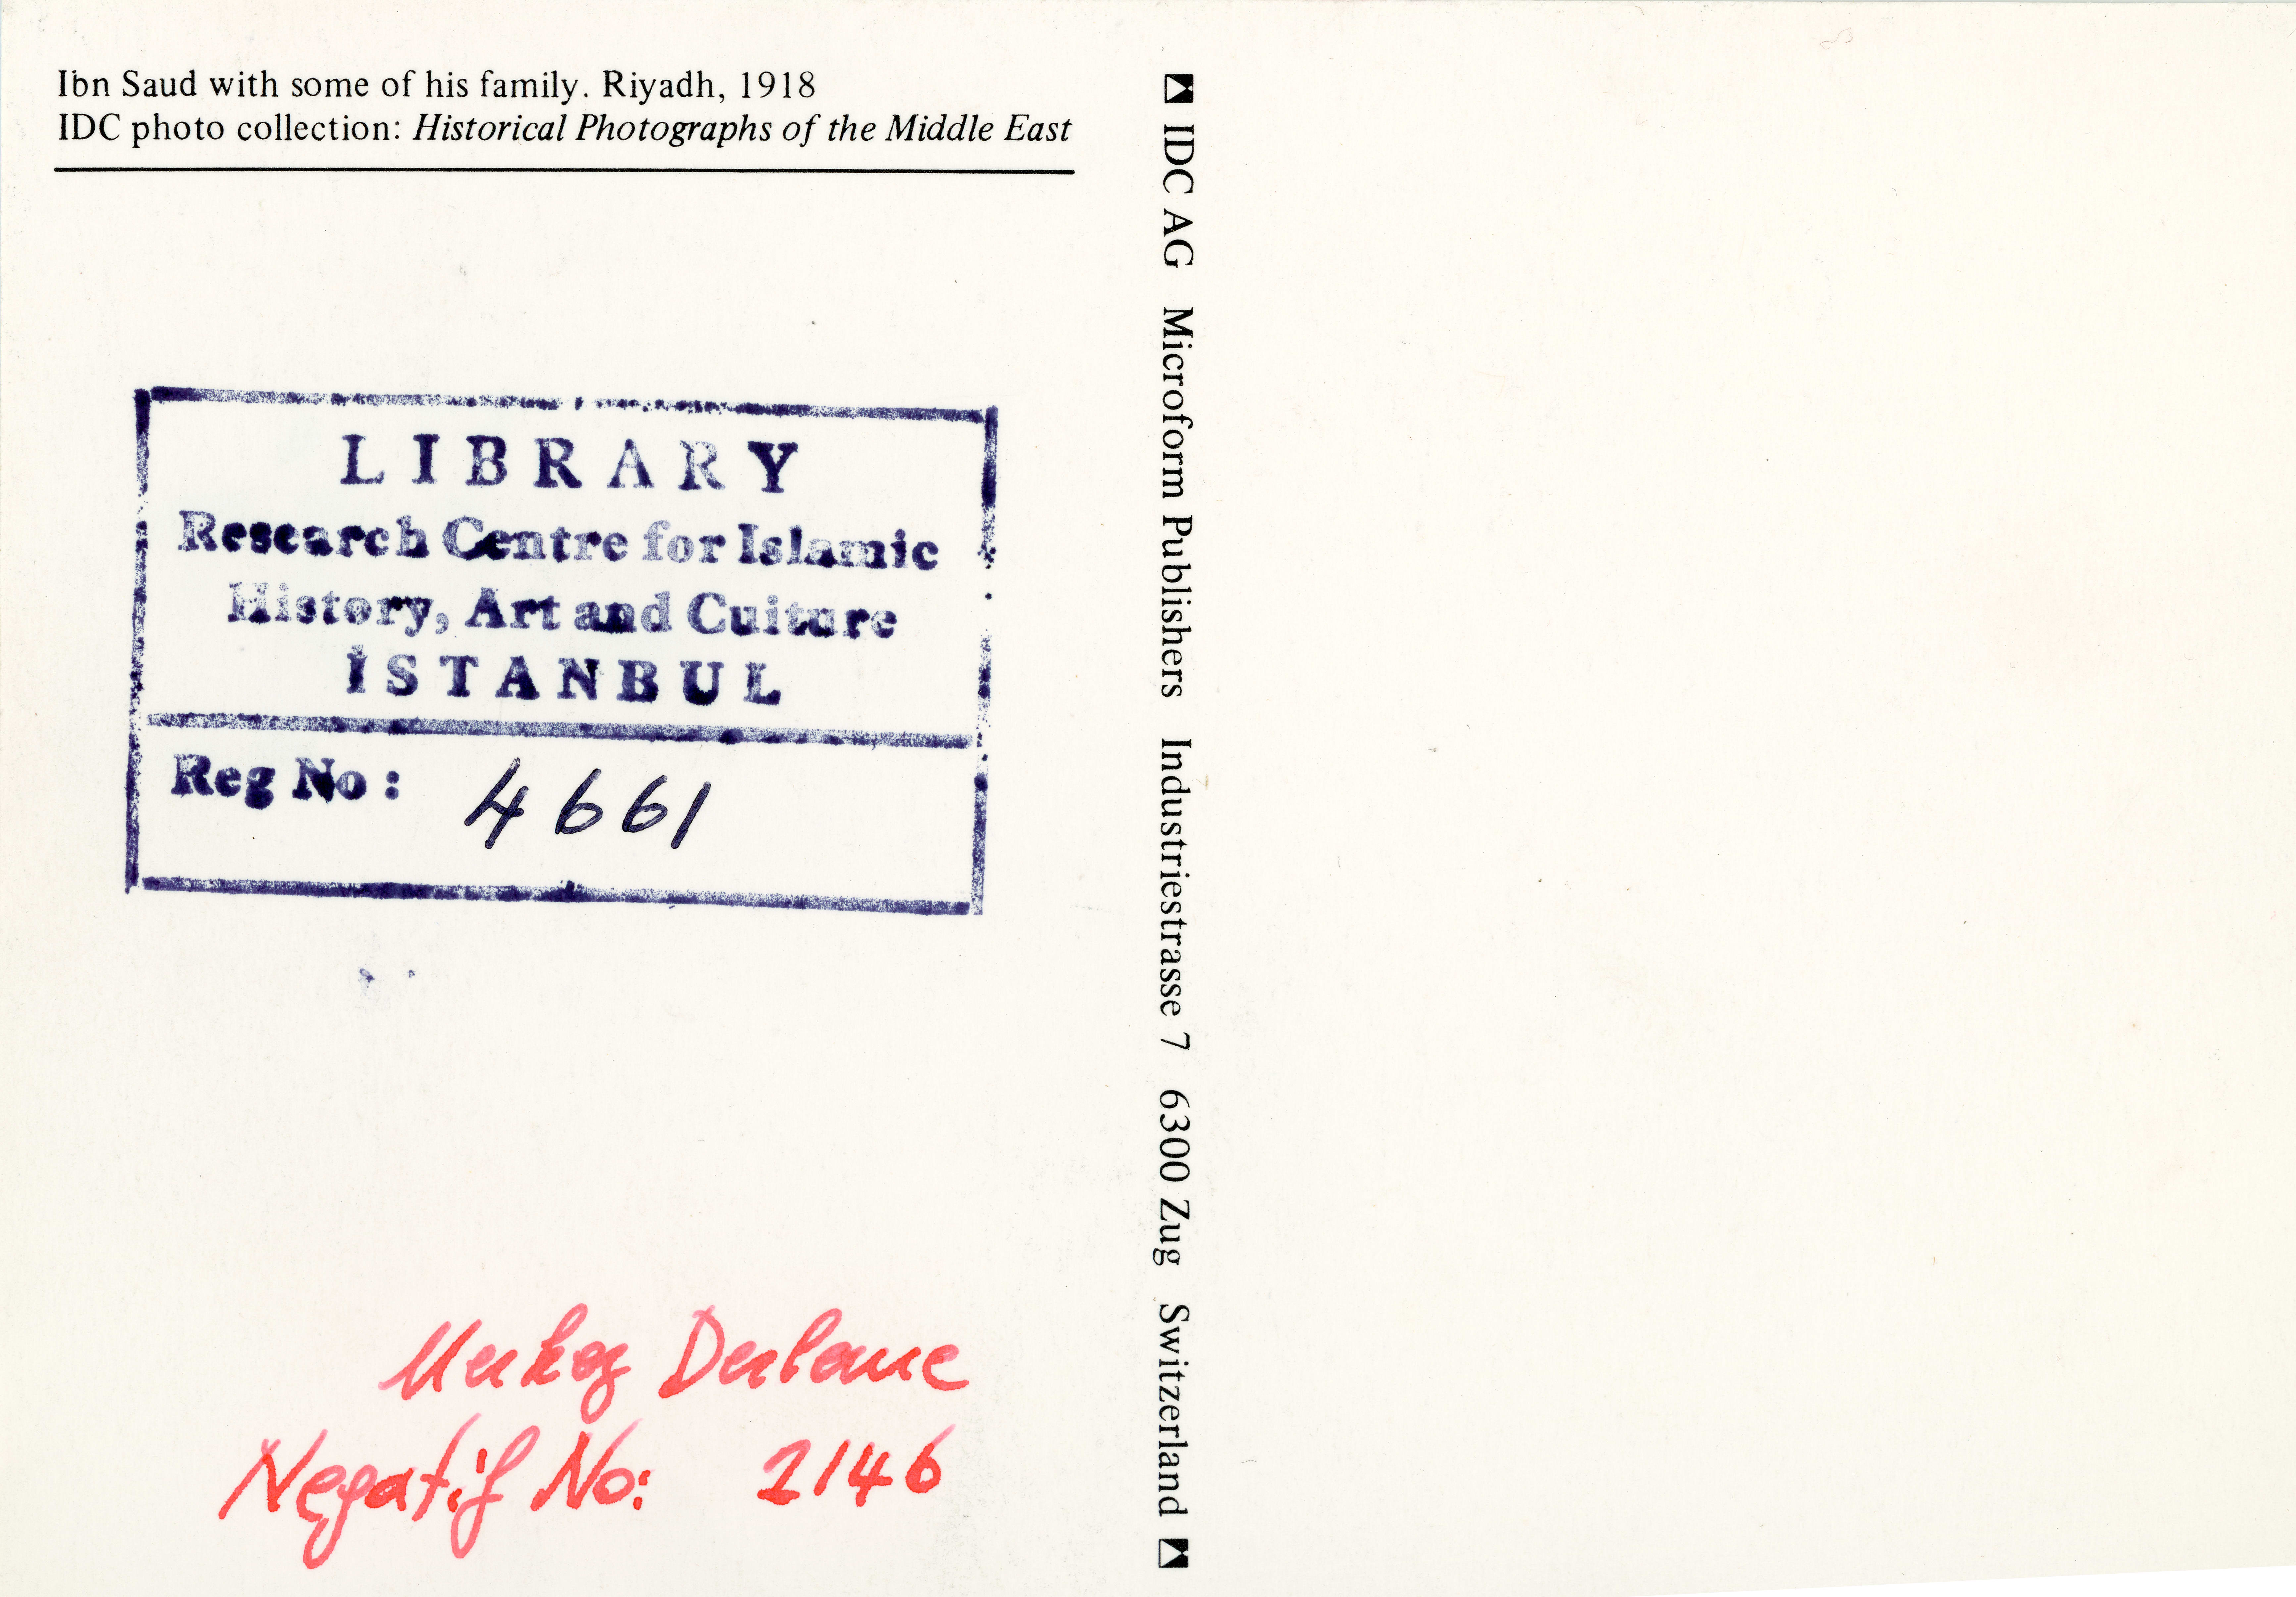 Ibn Saud with some of his family. Riyadh, 1918
IDC photo collection: Historical Photographs of the Middle East
LIBRARY
Research Centre for Islamic
History, Art and Culture
İSTANBUL
Reg No: 4661
Negatif No: 2146
IDC AG Microform Publishers Industriestrasse 7 6300 Zug Switzerland